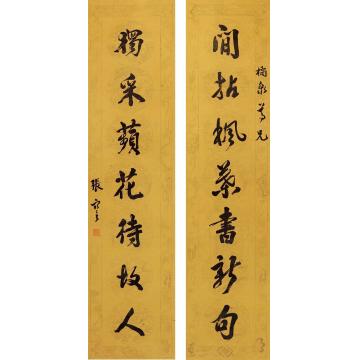 閒拈楓葉書新句
尊兄
獨采蘋花待故人
張